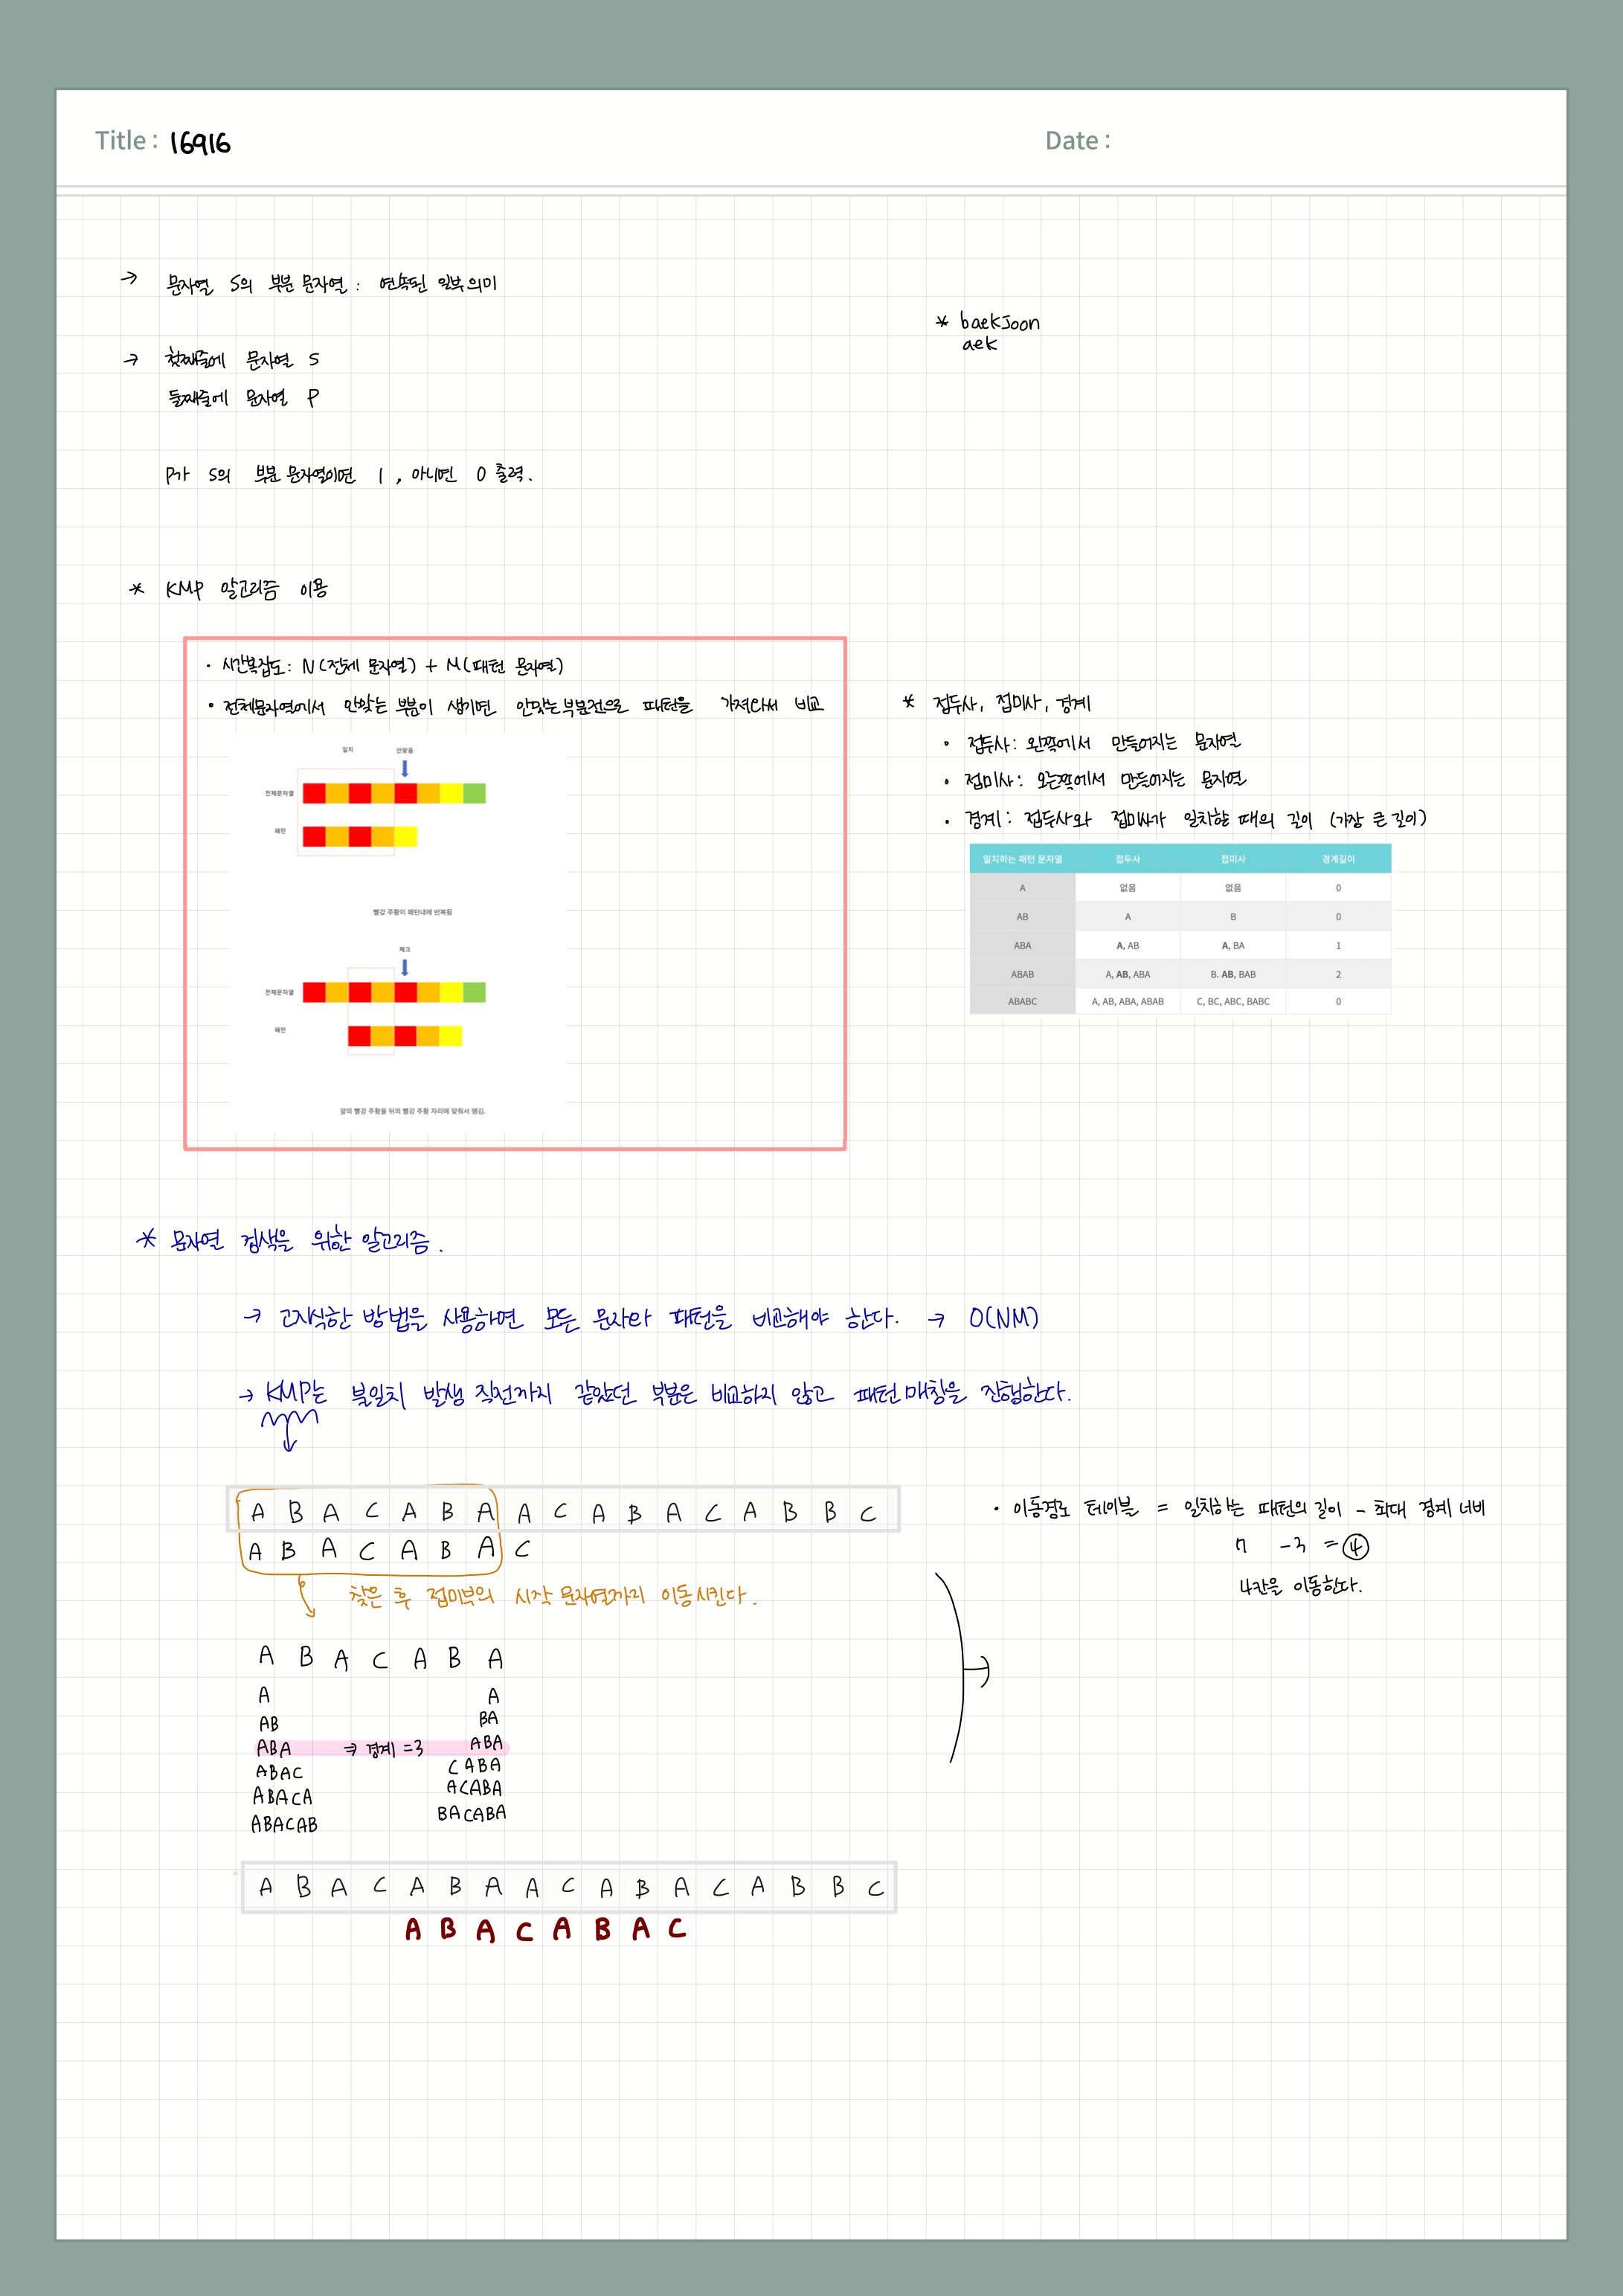 Title : 16916
Date :
→ 문자열 S의 부분 문자열 : 연속된 일부 의미
* baekJoon
aek
→ 첫째줄에 문자열 S
둘째줄에 문자열 P
P가 S의 부분 문자열이면 1 , 아니면 0 출력.
* KMP 알고리즘 이용
• 시간복잡도: N(전체 문자열) + M(패턴 문자열)
• 전체문자열에서 안맞는 부분이 생기면 안맞는부분전으로 패턴을 가져와서 비교
일치 안맞음
전체문자열
패턴
빨강 주황이 패턴내에 반복됨
체크
전체문자열
패턴
앞의 빨강 주황을 뒤의 빨강 주황 자리에 맞춰서 땡김.
* 접두사, 접미사, 경계
• 접두사: 왼쪽에서 만들어지는 문자열
• 접미사: 오른쪽에서 만들어지는 문자열
• 경계: 접두사와 접미사가 일치할 때의 길이 (가장 큰 길이)
일치하는 패턴 문자열 접두사 접미사 경계길이
A 없음 없음 0
AB A B 0
ABA A, AB A, BA 1
ABAB A, AB, ABA B. AB, BAB 2
ABABC A, AB, ABA, ABAB C, BC, ABC, BABC 0
* 문자열 검색을 위한 알고리즘.
→ 고지식한 방법을 사용하면 모든 문자와 패턴을 비교해야 한다. → O(NM)
→ KMP는 불일치 발생 직전까지 같았던 부분은 비교하지 않고 패턴매칭을 진행한다.
A B A C A B A A C A B A C A B B C
A B A C A B A C
찾은 후 접미부의 시작 문자열까지 이동시킨다.
• 이동경로 테이블 = 일치하는 패턴의 길이 - 최대 경계 너비
7 - 3 = 4
4칸을 이동한다.
A B A C A B A
A A
AB BA
ABA ⇒ 경계 = 3 ABA
ABAC CABA
ABACA ACABA
ABACAB BACABA
A B A C A B A A C A B A C A B B C
A B A C A B A C